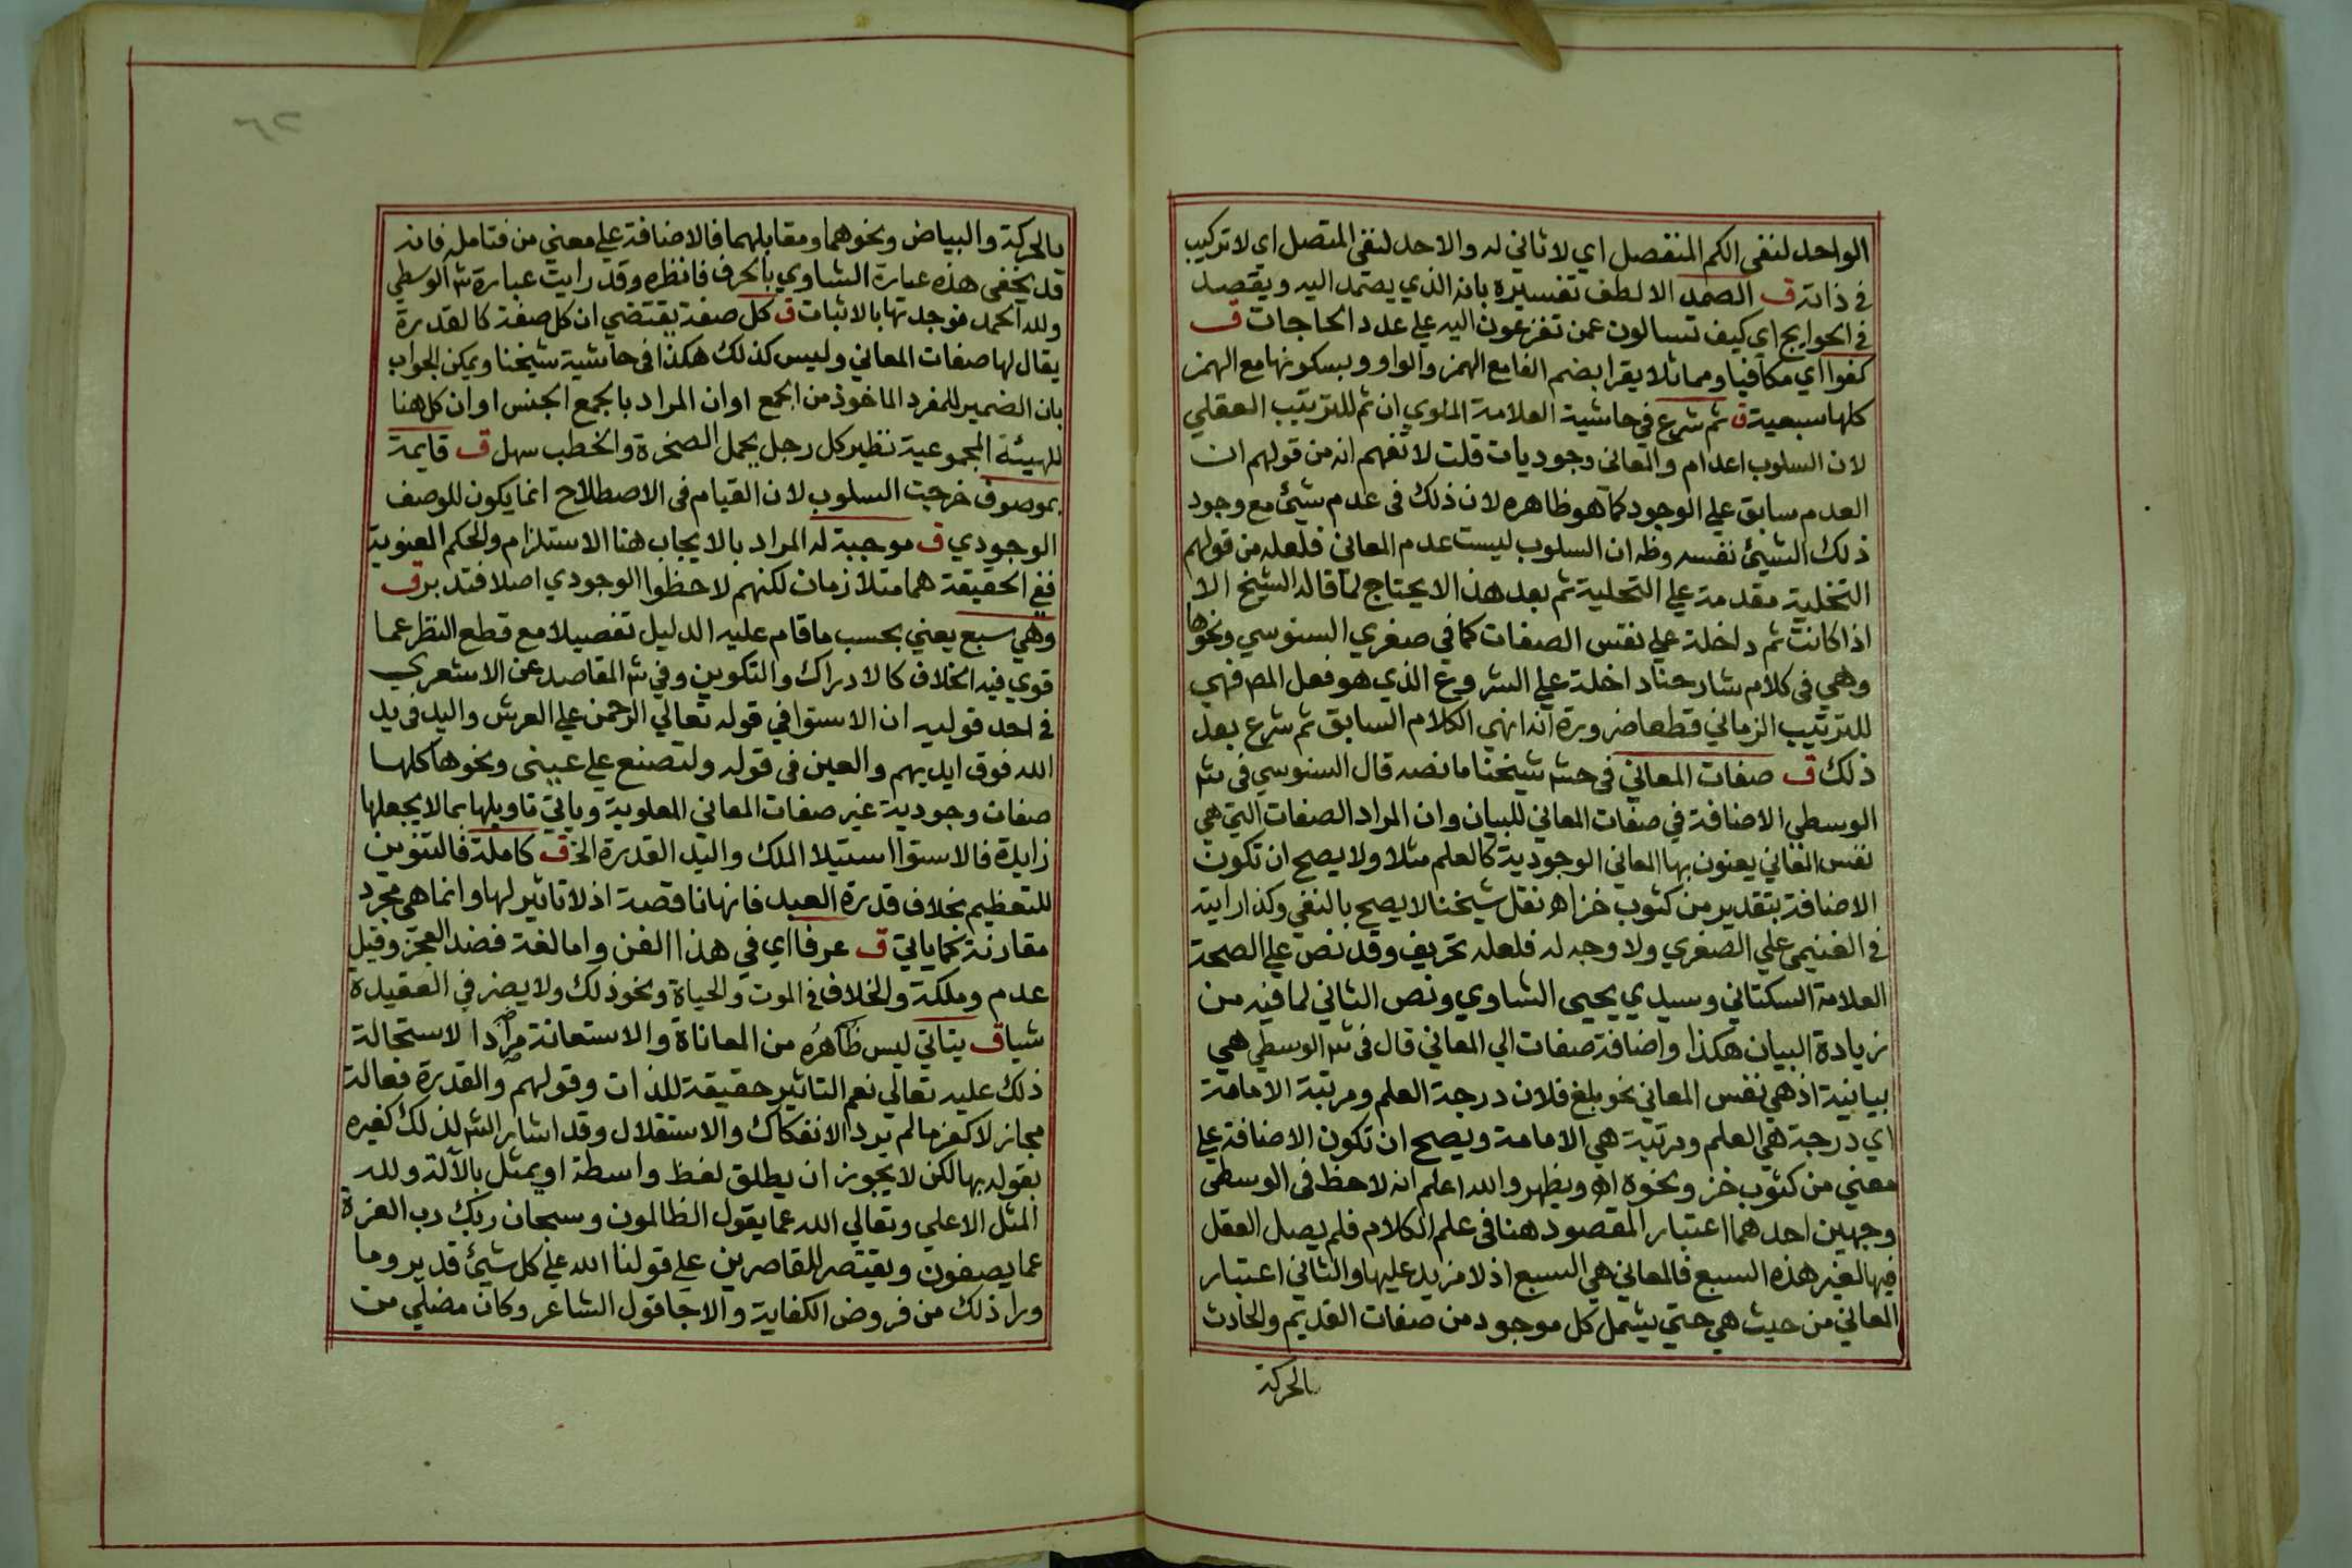 الواحد لنفي الكم المنفصل اي لا ثاني له والاحد لنفي المتصل اي لا تركيب
في ذاته ق الصمد الالطف تفسيره بانه الذي يصمد اليه ويقصد
في الحوايج اي كيف تسالون عمن تفزعون اليه علي عدد الحاجات ق
كفوا اي مكافيا ومماثلا يقرا بضم الفا مع الهمز والواو وبسكونها مع الهمز
كلها سبعية ق ثم شرع في حاشية العلامة الملوي ان ثم للترتيب العقلي
لان السلوب اعدام والمعاني وجوديات قلت لا تفهم انه من قولهم ان
العدم سابق علي الوجود كما هو ظاهره لان ذلك في عدم شيئ مع وجود
ذلك الشيئ نفسه وظه ان السلوب ليست عدم المعاني فلعله من قولهم
التخلية مقدمة علي التحلية ثم بعد هذا لا يحتاج لما قاله الشيخ الا
اذا كانت ثم داخلة علي نفس الصفات كما في صغري السنوسي ونحوها
وهي في كلام شارحنا داخلة علي الشروع الذي هو فعل المص فهي
للترتيب الزماني قطعا ضرورة انه انهي الكلام السابق ثم شرع بعد
ذلك ق صفات المعاني في حش شيخنا ما نصه قال السنوسي في ش
الوسطي الاضافة في صفات المعاني للبيان وان المراد الصفات التي هي
نفس المعاني يعنون بها المعاني الوجودية كالعلم مثلا ولا يصح ان تكون
الاضافة بتقدير من كثوب خز اه نقل شيخنا لا يصح بالنفي وكذا رايته
في الغنيمي علي الصغري ولا وجه له فلعله تحريف وقد نص علي الصحة
العلامة السكتاني وسيدي يحيى الشاوي ونص الثاني لما فيه من
زيادة البيان هكذا واضافة صفات الي المعاني قال في ش الوسطي هي
بيانية اذ هي نفس المعاني نحو بلغ فلان درجة العلم ومرتبة الامامة
اي درجة هي العلم ومرتبة هي الامامة ويصح ان تكون الاضافة علي
معني من كثوب خز ونحوه اه ويظهر والله اعلم انه لاحظ في الوسطي
وجهين احدهما اعتبار المقصود هنا في علم الكلام فلم يصل العقل
فيها لغير هذه السبع فالمعاني هي السبع اذ لا مزيد عليها والثاني اعتبار
المعاني من حيث هي حتي يشمل كل موجود من صفات القديم والحادث
بالحركة
٦٢
بالحركة والبياض ونحوهما ومقابلهما فالاضافة علي معني من فتامله فانه
قد يخفي هذه عبارة الشاوي بالحرف فانظره وقد رايت عبارة ش الوسطي
ولله الحمد فوجدتها بالاثبات ق كل صفة يقتضي ان كل صفة كالقدرة
يقال لها صفات المعاني وليس كذلك هكذا في حاشية شيخنا ويمكن الجواب
بان الضمير للمفرد الماخوذ من الجمع او ان المراد بالجمع الجنس او ان كل هنا
للهيئة المجموعية نظير كل رجل يحمل الصخرة والخطب سهل ق قايمة
بموصوف خرجت السلوب لان القيام في الاصطلاح انما يكون للوصف
الوجودي ق موجبة له المراد بالايجاب هنا الاستلزام والحكم المعنوية
ففي الحقيقة هما متلازمان لكنهم لاحظوا الوجودي اصلا فتدبر ق
وهي سبع يعني بحسب ما قام عليه الدليل تفصيلا مع قطع النظر عما
قوي فيه الخلاف كالادراك والتكوين وفي ش المقاصد عن الاشعري
في احد قوليه ان الاستوا في قوله تعالي الرحمن علي العرش واليد في يد
الله فوق ايديهم والعين في قوله ولتصنع علي عيني ونحوها كلها
صفات وجودية غير صفات المعاني المعلومة وياتي تاويلها بما لا يجعلها
زايدة فالاستوا استيلا الملك واليد القدرة الخ ق كاملة فالتنوين
للتعظيم بخلاف قدرة العبد فانها ناقصة اذ لا تاثير لها وانما هي مجرد
مقارنة كما ياتي ق عرفا اي في هذا الفن واما لغة فضد العجز وقيل
عدم وملكة والخلاف في الموت والحياة ونحو ذلك ولا يضر في العقيدة
شيا ق يتاتي ليس ظاهره من المعاناة والاستعانة مرادا لاستحالة
ذلك عليه تعالي نعم التاثير حقيقة للذات وقولهم والقدرة فعالة
مجاز لا كفر ما لم يرد الانفكاك والاستقلال وقد اشار الش لذلك كغيره
بقوله بها لكن لا يجوز ان يطلق لفظ واسطة او يمثل بالآلة ولله
المثل الاعلي وتعالي الله عما يقول الظالمون وسبحان ربك رب العزة
عما يصفون ويقتصر للقاصرين علي قولنا الله علي كل شيئ قدير وما
ورا ذلك من فروض الكفاية والا جا قول الشاعر وكان مضلي من